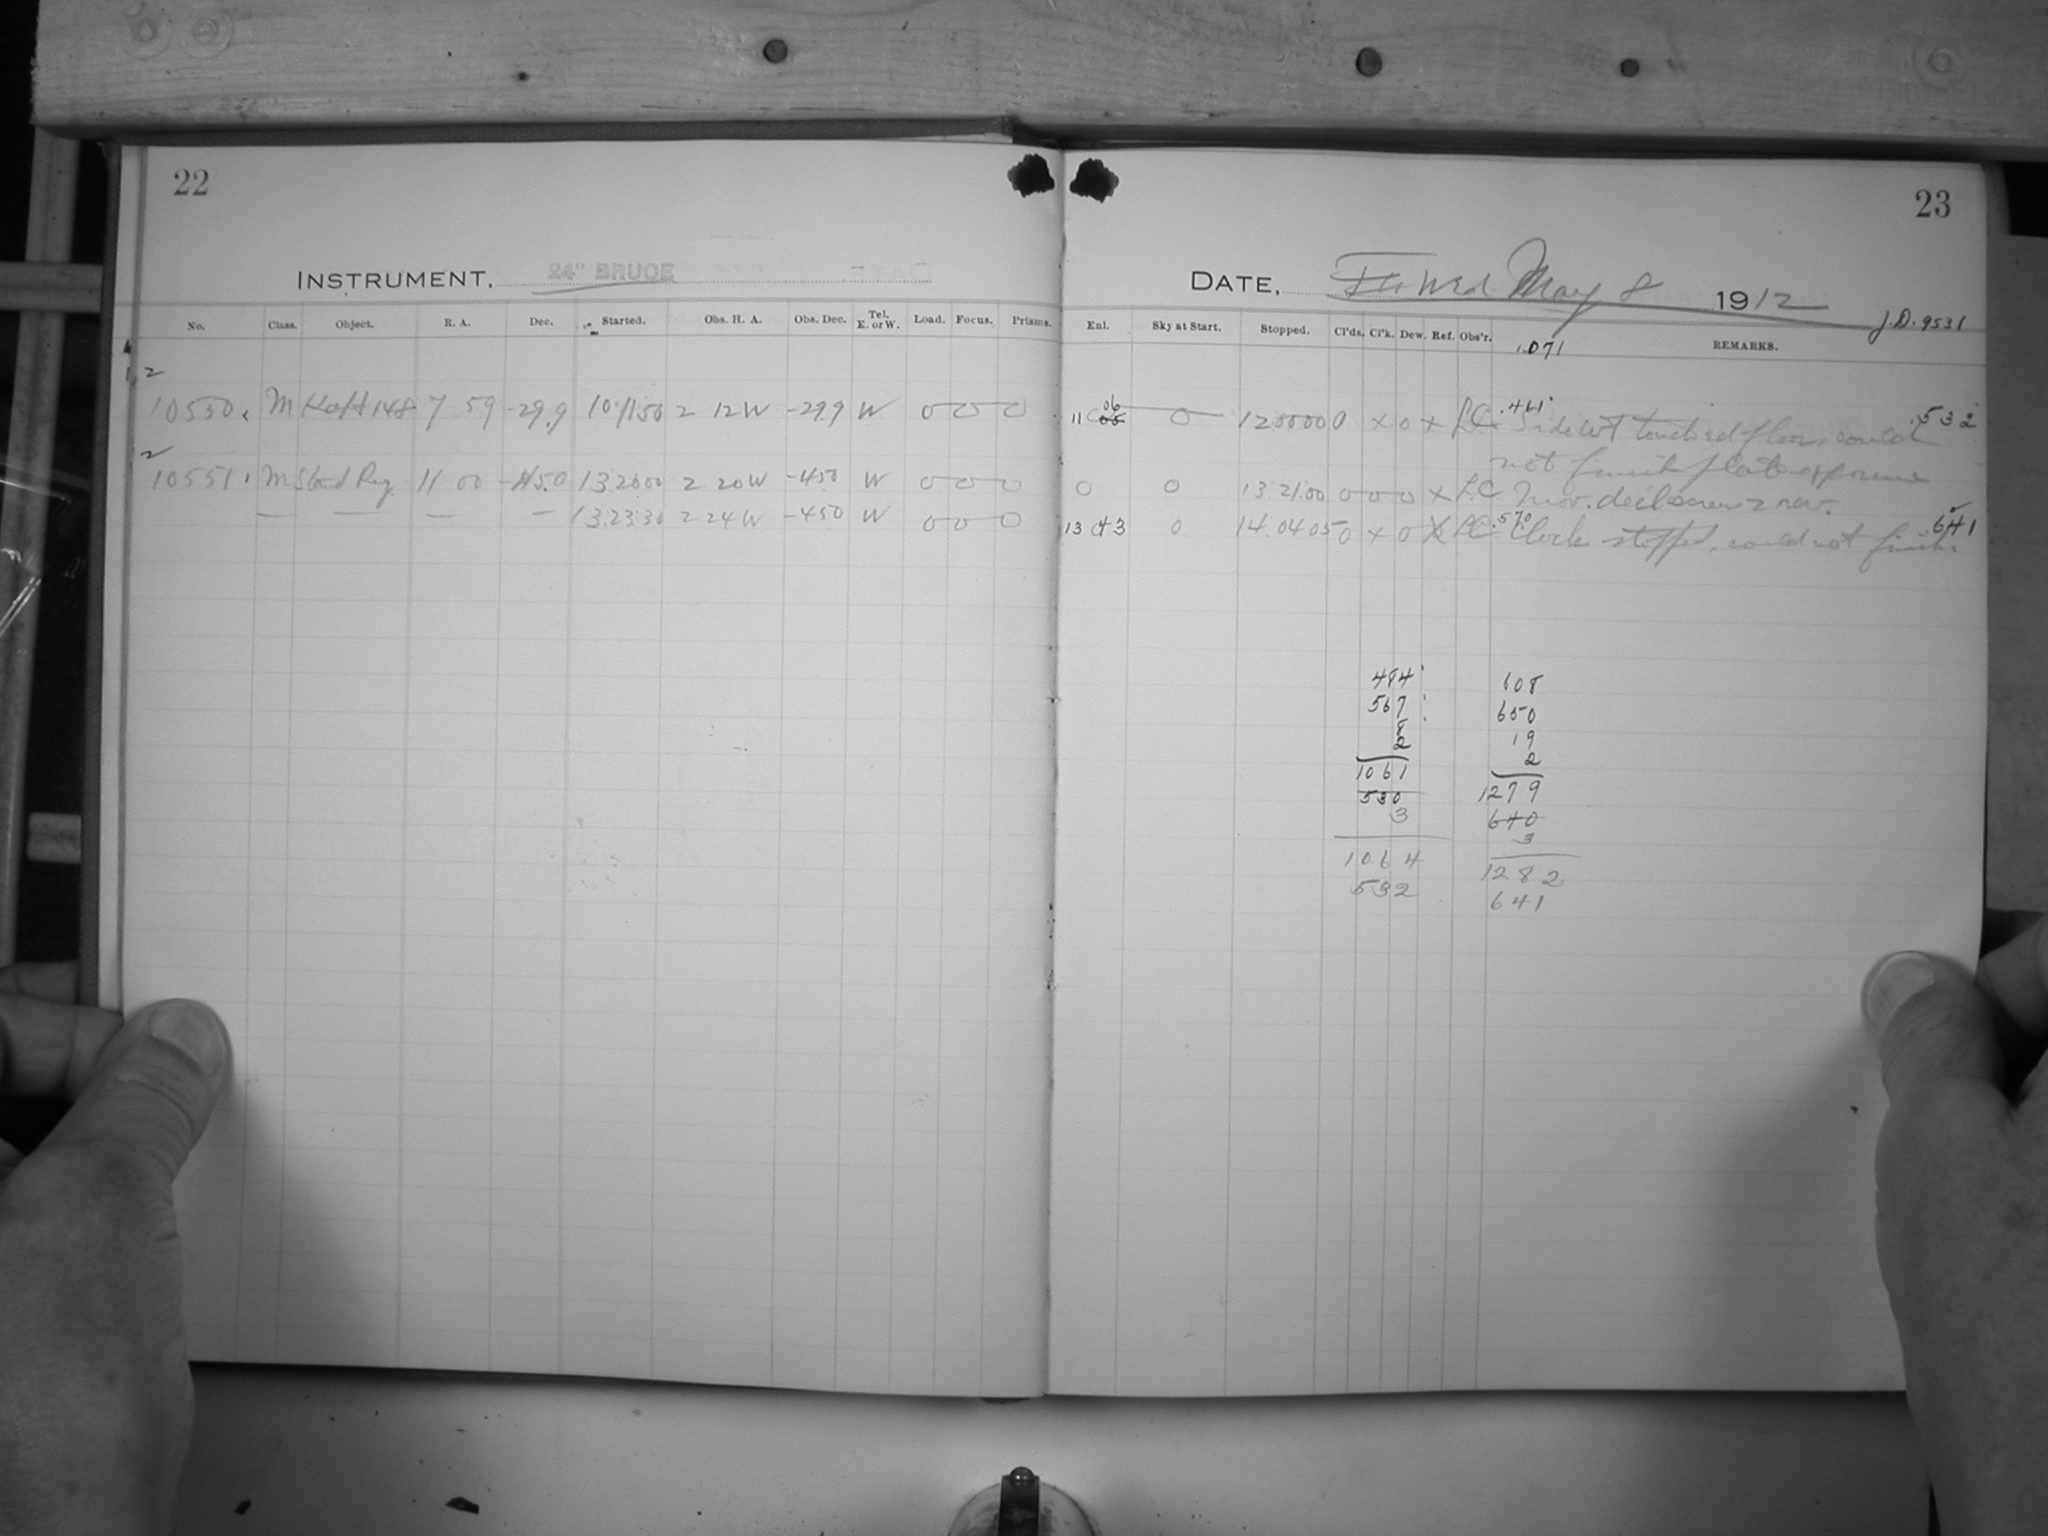 22
INSTRUMENT, 24" BRUCE
No. Class. Object. R. A. Dec. Started. Obs. H. A. Obs. Dec. Tel. E. or W. Load. Focus. Prisms.
2
10550 M 148 7 59 -29.9 10.11.50 2 12 W -29.9 W 0 0 0
2
10551 M Stand Reg. 11 00 -45.0 13.20.00 2 20 W -450 W 0 0 0
— — — — 13.23.30 2 24 W -450 W 0 0 0
23
DATE, Wed. May 8 1912
J.D. 9531
Enl. Sky at Start. Stopped. Cl'ds. Cl'k. Dew. Ref. Obs'r. REMARKS.
1.071
11 06 0 12.00.00 0 x 0 x L.C. .461 touched floor, could .532
not finish plate exposure
0 0 13.21.00 0 0 0 x L.C. mov. decl. screw 2 rev.
13 43 0 14.04.05 0 x 0 x L.C. .570 Clock stopped, could not finish. .641
484 608
567 650
8 19
2 2
1061 1279
530 640
3 3
1064 1282
532 641